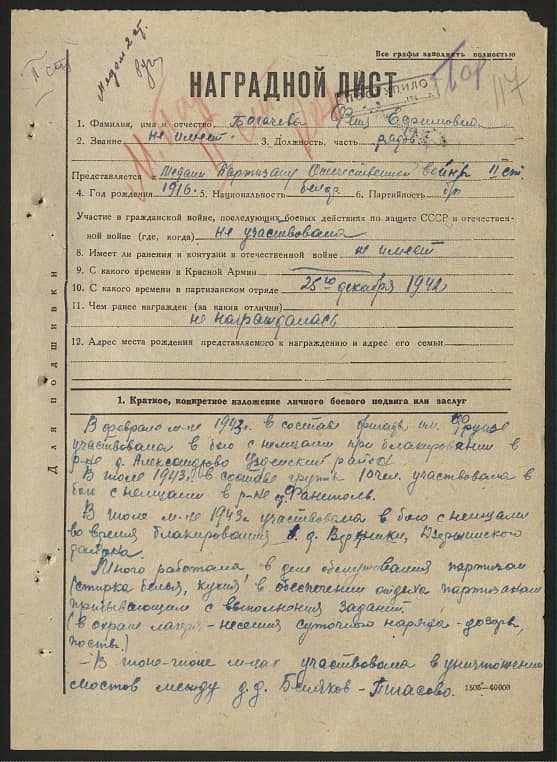 Медаль 2 ст.
II ст.
Все графы заполнять полностью
117
НАГРАДНОЙ ЛИСТ
ПОСТУПИЛО
1. Фамилия, имя и отчество Богачева Ефимовна
2. Звание не имеет 3. Должность, часть рядов.
Представляется к медали Партизану Отечественной войны II ст.
4. Год рождения 1916 5. Национальность 6. Партийность б/п
Участие в гражданской войне, последующих боевых действиях по защите СССР и отечествен-
ной войне (где, когда) не участвовала
8. Имеет ли ранения и контузии в отечественной войне не имеет
9. С какого времени в Красной Армии
10. С какого времени в партизанском отряде 25го декабря 1942г.
11. Чем ранее награжден (за какия отличия)
не награждалась
12. Адрес места рождения представляемого к награждению и адрес его семьи
Для подшивки
1. Краткое, конкретное изложение личного боевого подвига или заслуг
В феврале м-це 1943г. в составе бригады им. Фрунзе
участвовала в бою с немцами при блакировании в
р-не д. Александрово Узденский район.
В июле 1943г. в составе групы 10 чел. участвовала в
бою с немцами в р-не
В июле м-це 1943г участвовала в бою с немцами
во время блакирования в д. Дзержинского
района.
Много работала в деле обслуживания партизан
(стирка белья, кухня) в обеспечении отдыха партизанам
прибывающем с выполнения заданий.
(в охране лагеря - несения суточного наряда - дозоры,
посты.)
- В июне-июле м-цах участвовала в уничтожении
мостов между д.д. 1505-40000